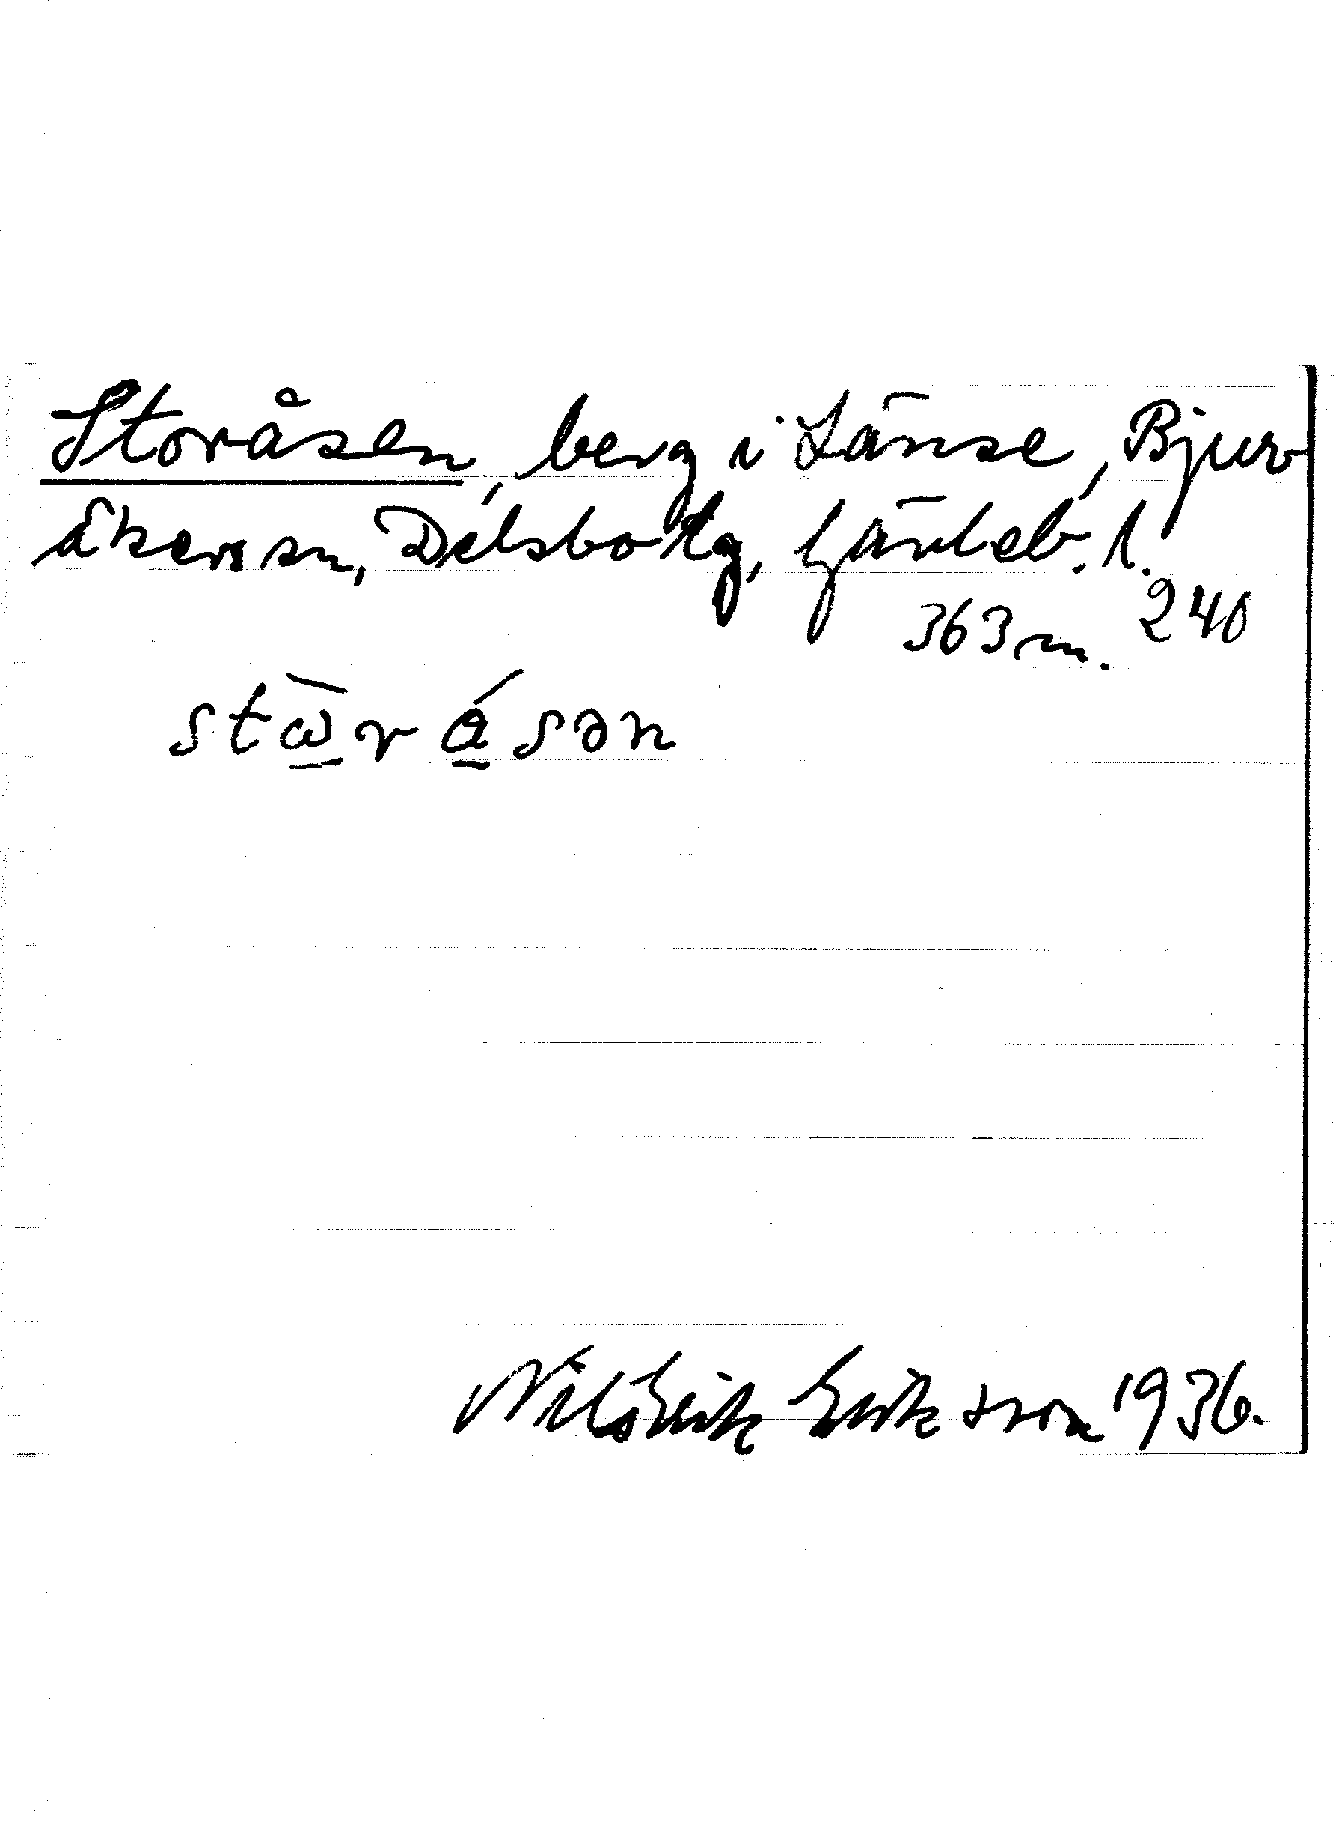 Storåsen, berg i Länse, Bjur
åkers sn, Delsbo tg, Gävleb. l.
363 m. 240
stὼ̠rá̠sən
Nils Erik Eriksson 1936.